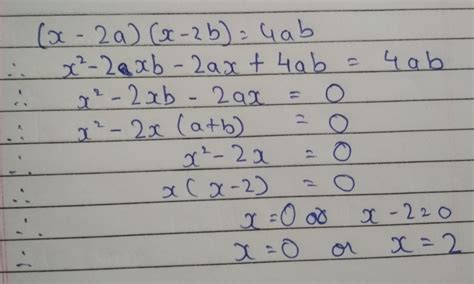 (x - 2a) (x - 2b) = 4ab
∴ x² - 2xb - 2ax + 4ab = 4ab
∴ x² - 2xb - 2ax = 0
∴ x² - 2x (a+b) = 0
∴ x² - 2x = 0
∴ x (x - 2) = 0
∴ x = 0 or x - 2 = 0
∴ x = 0 or x = 2